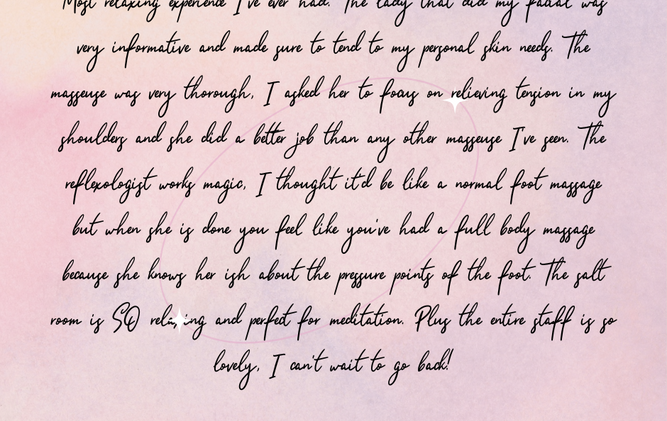 Most relaxing experience I've ever had. The lady that did my facial was
very informative and made sure to tend to my personal skin needs. The
masseuse was very thorough, I asked her to focus on relieving tension in my
shoulders and she did a better job than any other masseuse I've seen. The
reflexologist works magic, I thought it'd be like a normal foot massage
but when she is done you feel like you've had a full body massage
because she knows her ish about the pressure points of the foot. The salt
room is SO relaxing and perfect for meditation. Plus the entire staff is so
lovely, I can't wait to go back!